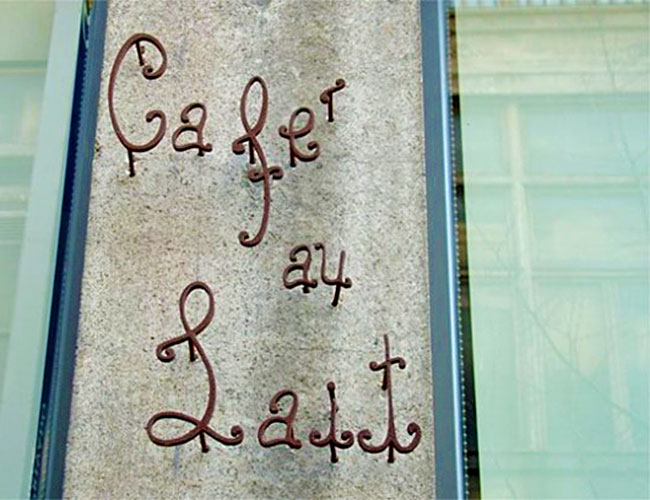 Café
au
Lait